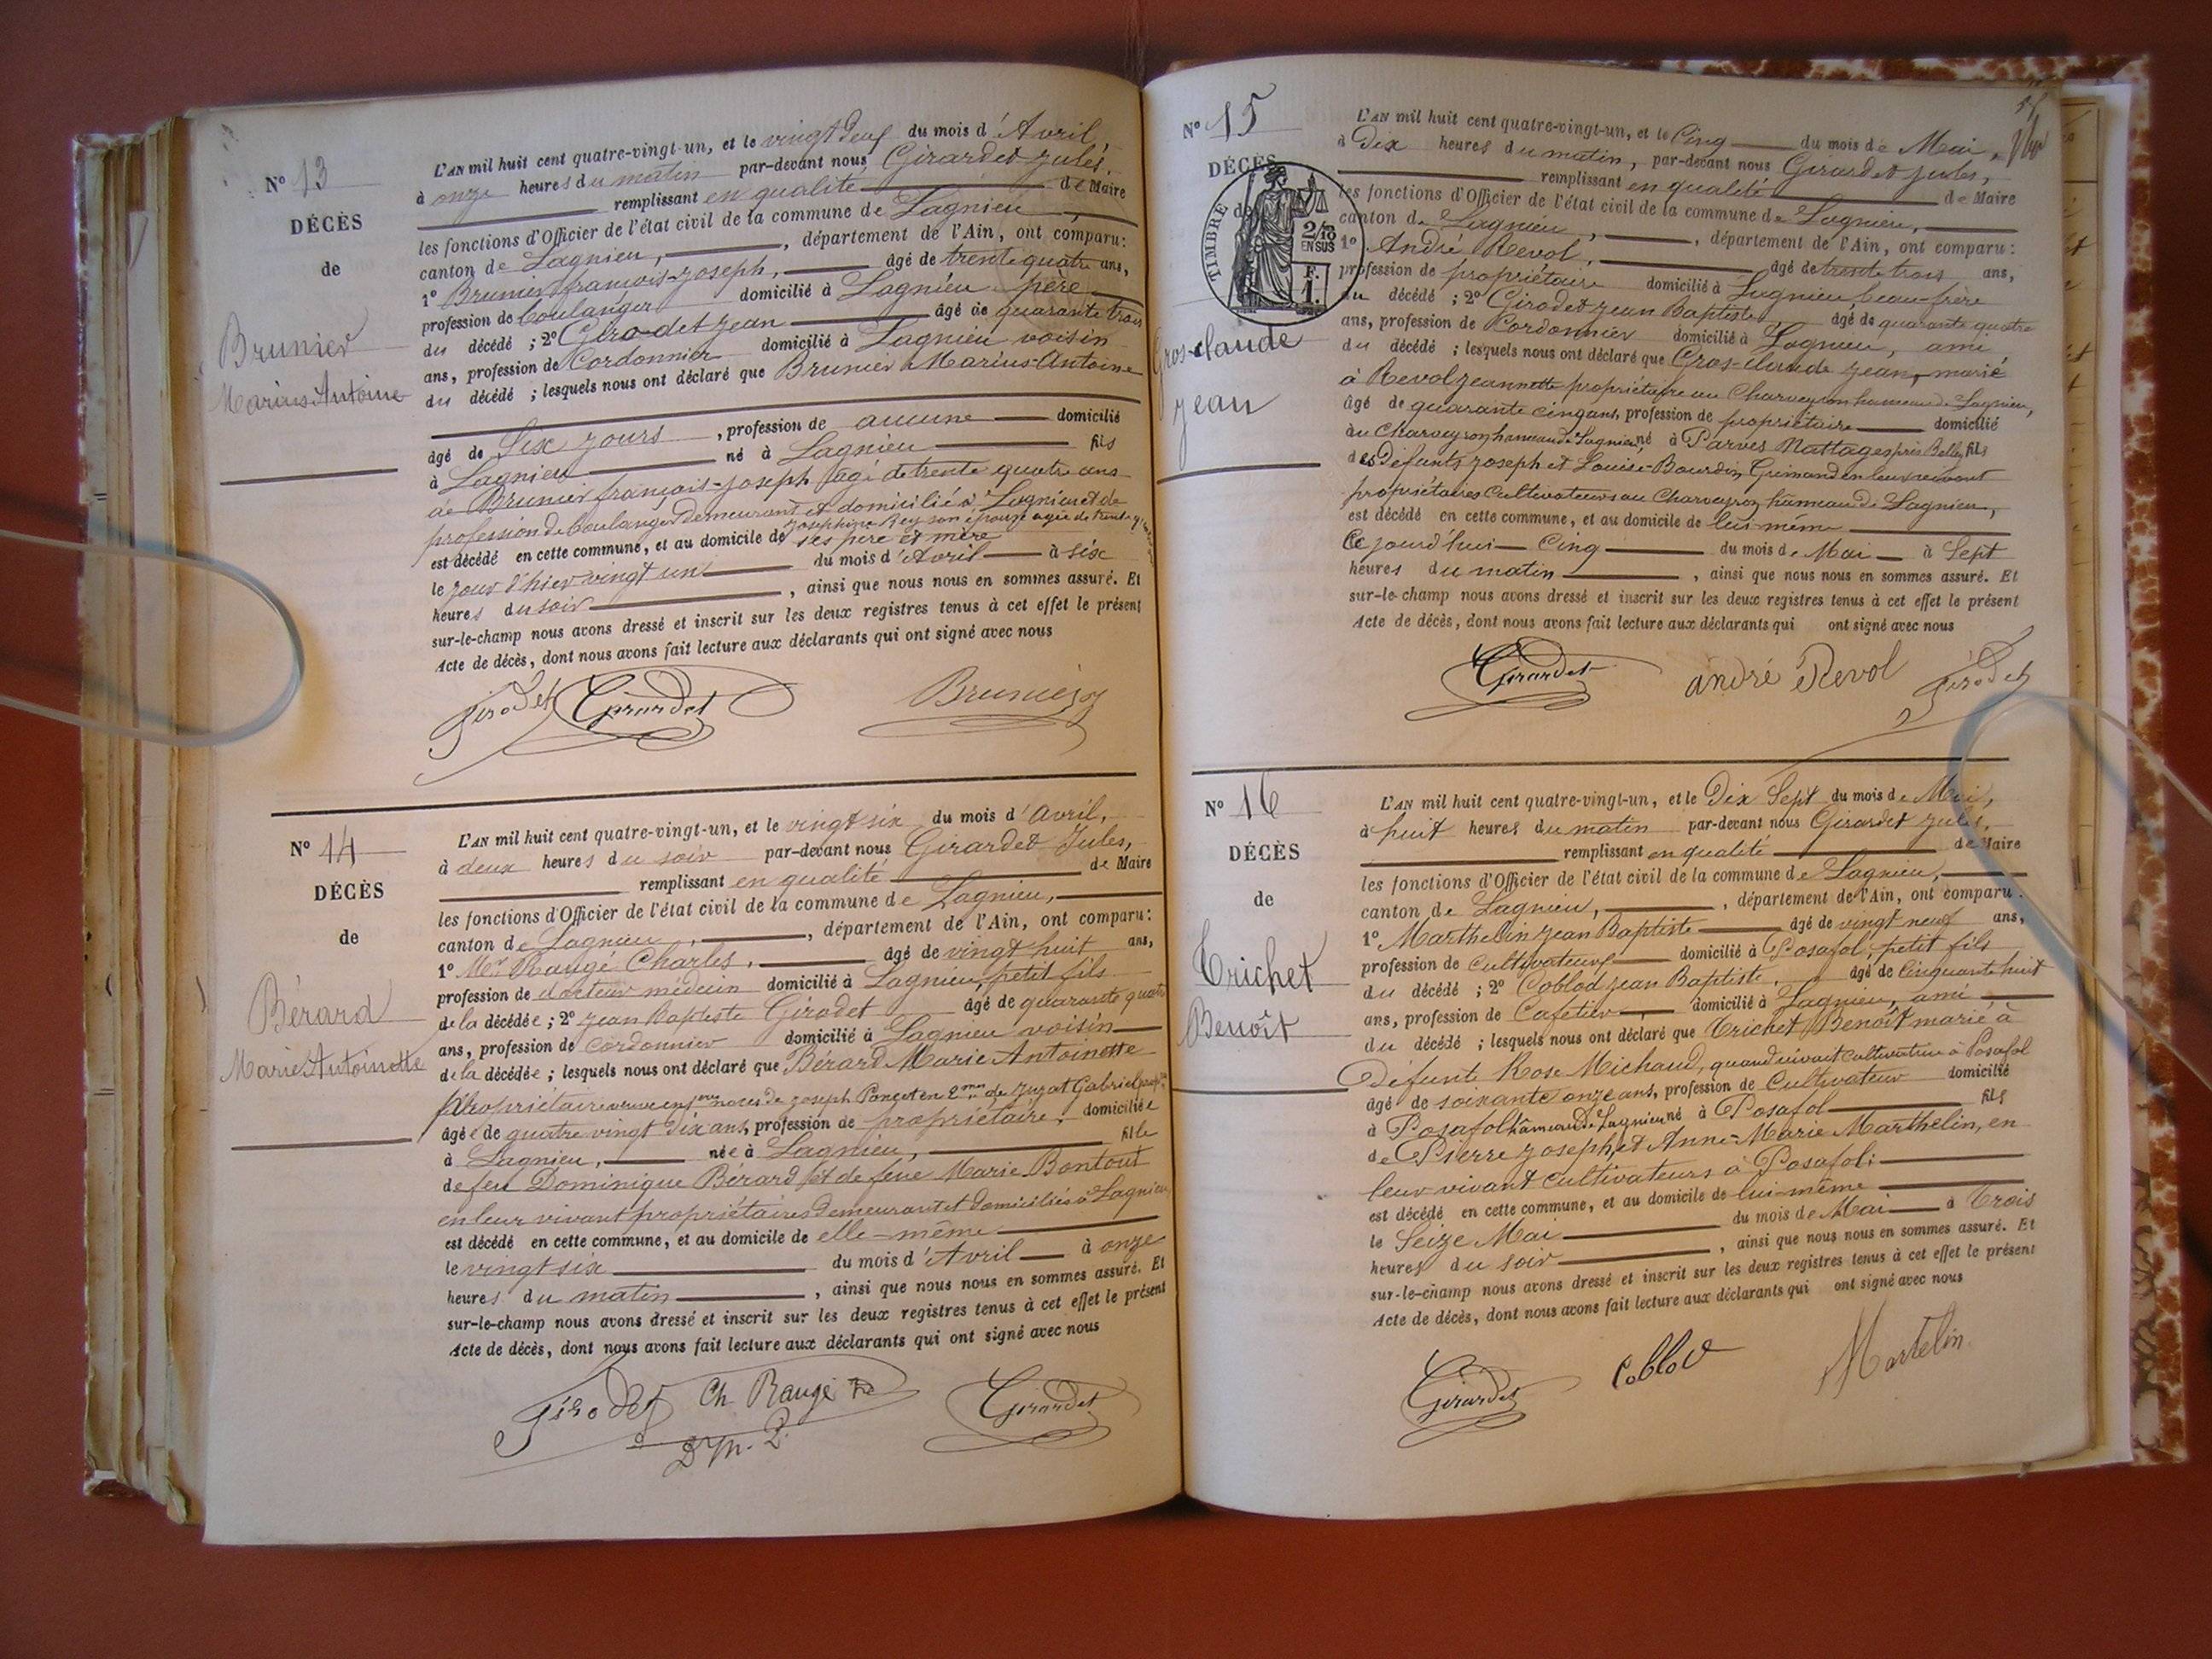 N° 13
DÉCÈS
de
Brunier
Marius Antoine
L'AN mil huit cent quatre-vingt-un, et le vingt deux du mois d'Avril,
à onze heures du matin par-devant nous Girardet Jules,
remplissant en qualité de Maire
les fonctions d'Officier de l'état civil de la commune de Lagnieu,
canton de Lagnieu, département de l'Ain, ont comparu:
1° Brunier françois-Joseph, âgé de trente quatre ans,
profession de boulanger domicilié à Lagnieu père
du décédé ; 2° Girodet Jean âgé de quarante trois
ans, profession de Cordonnier domicilié à Lagnieu voisin
du décédé ; lesquels nous ont déclaré que Brunier Marius-Antoine
âgé de Six jours, profession de aucune domicilié
à Lagnieu né à Lagnieu fils
de Brunier françois-Joseph âgé de trente quatre ans
profession de boulanger Demeurant et domicilié à Lagnieu et de
Josephine Rey son épouse agée de trente
est décédé en cette commune, et au domicile de ses père et mère
le jour d'hier vingt un du mois d'Avril à six
heures du soir, ainsi que nous nous en sommes assuré. Et
sur-le-champ nous avons dressé et inscrit sur les deux registres tenus à cet effet le présent
Acte de décès, dont nous avons fait lecture aux déclarants qui ont signé avec nous
Girodet Girardet Brunier
N° 14
DÉCÈS
de
Bérard
Marie Antoinette
L'AN mil huit cent quatre-vingt-un, et le vingt six du mois d'Avril,
à deux heures du soir par-devant nous Girardet Jules,
remplissant en qualité de Maire
les fonctions d'Officier de l'état civil de la commune de Lagnieu,
canton de Lagnieu, département de l'Ain, ont comparu:
1° Mr Raugé Charles, âgé de vingt huit ans,
profession de docteur médecin domicilié à Lagnieu, petit fils
de la décédée ; 2° Jean Baptiste Girodet âgé de quarante quatre
ans, profession de cordonnier domicilié à Lagnieu voisin
de la décédée ; lesquels nous ont déclaré que Bérard Marie Antoinette
Propriétaire veuve en noces de Joseph Poncet en 2mes de Juzat Gabriel
âgée de quatre vingt dix ans, profession de propriétaire, domiciliée
à Lagnieu, née à Lagnieu, fille
de feu Dominique Bérard et de feue Marie Bontout
en leur vivant propriétaires demeurant et domiciliés à Lagnieu
est décédé en cette commune, et au domicile de elle-même
le vingt six du mois d'Avril à onze
heures du matin, ainsi que nous nous en sommes assuré. Et
sur-le-champ nous avons dressé et inscrit sur les deux registres tenus à cet effet le présent
Acte de décès, dont nous avons fait lecture aux déclarants qui ont signé avec nous
Girodet Ch Raugé Girardet
N° 15
DÉCÈS
de
TIMBRE
2/10
EN SUS
F.
1.
Gros-claude
Jean
L'AN mil huit cent quatre-vingt-un, et le Cinq du mois de Mai,
à Dix heures du matin, par-devant nous Girardet Jules,
remplissant en qualité de Maire
les fonctions d'Officier de l'état civil de la commune de Lagnieu,
canton de Lagnieu, département de l'Ain, ont comparu:
1° André Revol, âgé de trente trois ans,
profession de propriétaire domicilié à Lagnieu beau-frère
du décédé ; 2° Girodet Jean Baptiste, âgé de quarante quatre
ans, profession de Cordonnier domicilié à Lagnieu, ami
du décédé ; lesquels nous ont déclaré que Gros-claude Jean, marié
à Revol Jeannette propriétaire au Charveyron hameau de Lagnieu,
âgé de quarante cinq ans, profession de propriétaire domicilié
au Charveyron hameau de Lagnieu, né à Parves Nattages près Belley fils
des Défunts Joseph et Louise-Bourdin Grimand en leur vivant
propriétaires Cultivateurs au Charveyron hameau de Lagnieu,
est décédé en cette commune, et au domicile de lui-même
Ce jourd'hui Cinq du mois de Mai à Sept
heures du matin, ainsi que nous nous en sommes assuré. Et
sur-le-champ nous avons dressé et inscrit sur les deux registres tenus à cet effet le présent
Acte de décès, dont nous avons fait lecture aux déclarants qui ont signé avec nous
Girardet andré Revol Girodet
N° 16
DÉCÈS
de
Trichet
Benoît
L'AN mil huit cent quatre-vingt-un, et le Dix Sept du mois de Mai,
à huit heures du matin par-devant nous Girardet Jules,
remplissant en qualité de Maire
les fonctions d'Officier de l'état civil de la commune de Lagnieu,
canton de Lagnieu, département de l'Ain, ont comparu:
1° Marthelin Jean Baptiste âgé de vingt neuf ans,
profession de Cultivateur domicilié à Posafol, petit fils
du décédé ; 2° Coblod Jean Baptiste, âgé de Cinquante huit
ans, profession de Cafetier, domicilié à Lagnieu, ami
du décédé ; lesquels nous ont déclaré que Trichet Benoît marié à
Défunt Rose Michaud, quand vivait cultivatrice à Posafol
âgé de soixante onze ans, profession de Cultivateur domicilié
à Posafol hâmeau de Lagnieu né à Posafol fils
de Pierre Joseph, et Anne-Marie Marthelin, en
leur vivant cultivateurs à Posafol;
est décédé en cette commune, et au domicile de lui-même
le Seize Mai du mois de Mai à Trois
heures du soir, ainsi que nous nous en sommes assuré. Et
sur-le-champ nous avons dressé et inscrit sur les deux registres tenus à cet effet le présent
Acte de décès, dont nous avons fait lecture aux déclarants qui ont signé avec nous
Girardet Coblod Martelin